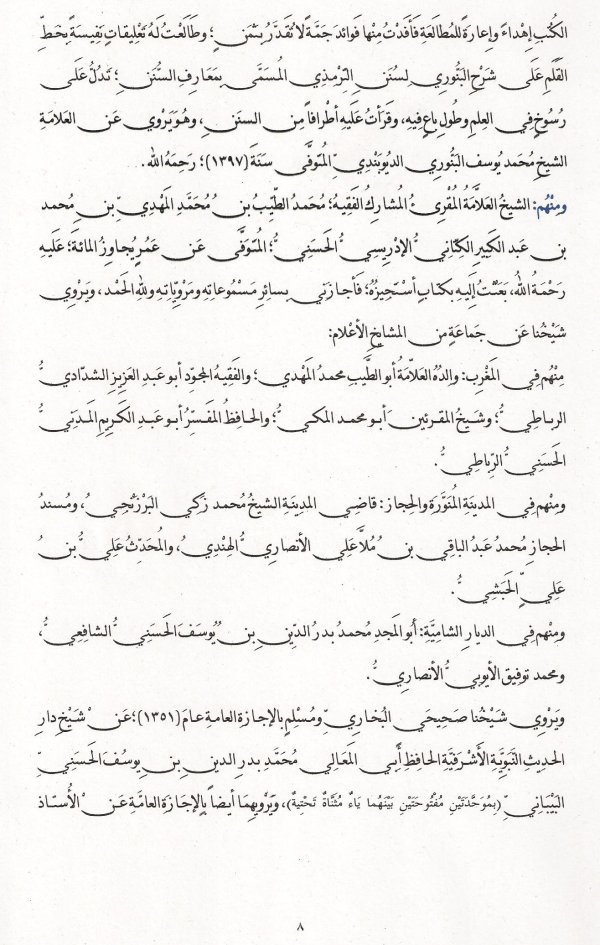 الكُتُبِ إِهْدَاءً وإِعارةً للمُطالَعَةِ فَأَفَدْتُ مِنْها فَوائدَ جَمَّةً لا تُقَدَّرُ بثَمَنٍ؛ وطَالَعْتُ لَهُ تَعْلِيقَاتٍ نَفِيسَةً بِخَطِّ
القَلَمِ عَلَى شَرْحِ البَنُّورِي لِسُنَنِ التِّرْمِذِي المُسَمَّى بِمَعَارِفِ السُّنَنِ؛ تَدُلُّ عَلَى
رُسُوخٍ فِي العِلمِ وطُولِ باعٍ فيهِ، وقَرَأتُ عَلَيهِ أطْرافاً مِن السننِ، وهُوَ يَرْوِي عَن العَلامَةِ
الشيخِ مُحَمد يوسف البَنُّورِي الديُوبَنْدِيِّ المُتوَفَّى سَنَةَ (١٣٩٧)؛ رَحِمَهُ الله.
ومِنْهُم: الشيخُ العَلَّامَةُ المُقْرِئُ المُشاركُ الفَقِيهُ؛ مُحَمَدُ الطَّيِّبُ بنُ مُحَمَّدِ المَهْدِيِّ بنِ محمد
بنِ عبد الكَبِيرِ الكتَّانِيُّ الإدْرِيسِيُّ الحَسَنِيُّ؛ المُتوَفَّى عَن عُمَرٍ يُجاوِزُ المائة؛ عَلَيهِ
رَحْمَةُ اللهِ، بَعَثْتُ إلَيهِ بكتابٍ أسْتَجِيزُهُ؛ فَأجازَنِي بِسائرِ مَسْمُوعاتِهِ ومَرْوِيّاتِهِ وللهِ الحَمْد، ويَرْوِي
شَيْخُنا عَن جَماعَةٍ من المشايخِ الأعْلام:
مِنْهُم فِي المَغْرِبِ: والدُهُ العَلاّمَةُ أبو الطَّيِّبِ محمدُ المَهْدي؛ والفَقِيهُ المجوِّد أبو عَبدِ العَزِيزِ الشدَّادِيُّ
الرباطِيُّ؛ وشَيخُ المقرئينَ أبو محمد المكيُّ؛ والحافِظُ المفَسِّرُ أبو عَبدِ الكَرِيمِ المَدَنِيُّ
الحَسَنِيُّ الرِّباطِيُّ.
ومِنْهم فِي المدينَةِ المُنَوَّرَةِ والحِجازِ: قاضِي المدِينَةِ الشيخُ مُحمد زَكي البَرْزَنْجِيُّ، ومُسنِدُ
الحجازِ مُحمدُ عَبدُ الباقِي بنُ مُلَّا عَلِي الأنصارِيُّ الهِنْدِيُّ، والمُحَدِّثُ عَلِيُّ بنُ
عَلِيٍّ الحَبَشِيُّ.
ومِنْهم فِي الديارِ الشاميَّةِ: أبُو المَجدِ مُحمدُ بدرُ الدِّينِ بنُ يُوسَفَ الحَسَنِيُّ الشافِعِيُّ،
ومحمد توفيق الأيوبِيُّ الأنصارِيُّ.
ويَرْوِي شَيْخُنا صَحِيحَي البُخارِيِّ ومُسْلِمٍ بالإجازةِ العامةِ عامَ (١٣٥١)؛ عَنْ شَيْخِ دارِ
الحدِيثِ النَّبَوِيَّةِ الأَشْرَفِيَّةِ الحافظِ أَبِي المَعَالِي مُحَمَّدِ بدرِ الدينِ بنِ يوسُفَ الحَسَنِيِّ
البَيْبَانِيِّ (بِمُوَحَّدَتَيْنِ مَفْتُوحَتَيْنِ بَيْنَهُما يَاءٌ مُثَنَّاةٌ تَحْتِيةٌ)، ويَرْوِيهِمَا أيضاً بالإجَازةِ العامَّةِ عَنْ الأُستاذ
٨